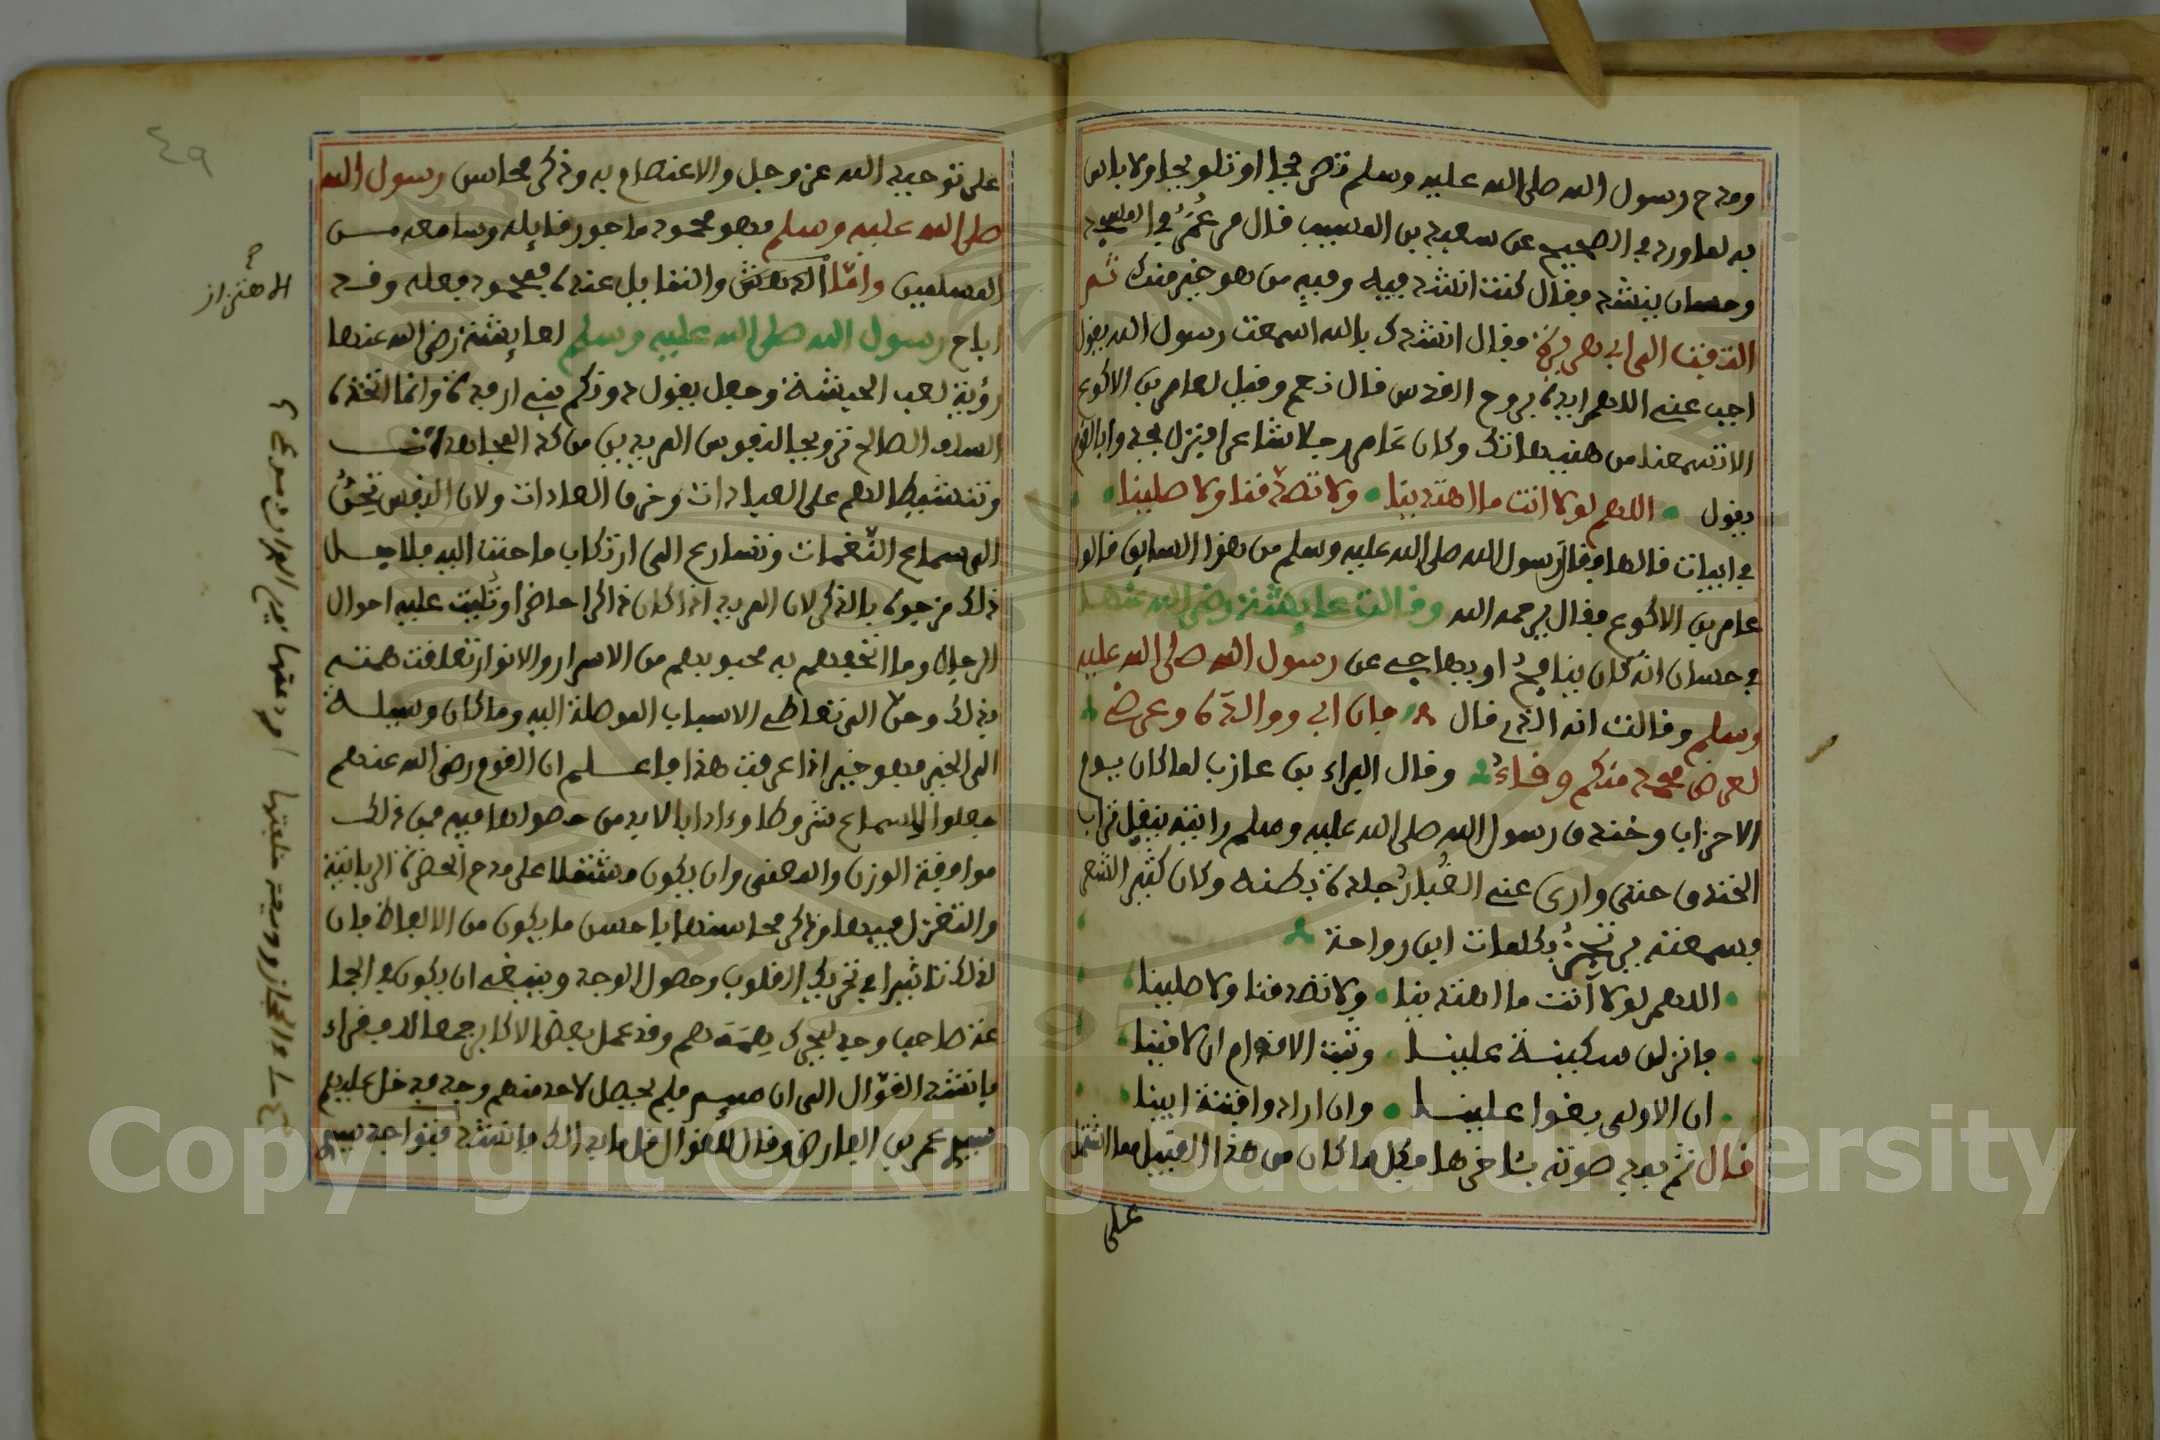 ومدح رسول الله صلى الله عليه وسلم تصريحا او تلويحا ولا باس
به لما ورد في الصحيح عن سعيد بن المسيب قال مر عُمَرُ في المسجد
وحسان ينشد فقال كنت انشد فيه وفيه من هو خير منك ثم
التفت الى ابي هريرة فقال انشدك بالله اسمعت رسول الله يقول
اجب عني اللهم ايده بروح القدس قال نعم وقيل لعامر بن الاكوع
الا تسمعنا من هنيهاتك وكان عامر رجلا شاعرا فنزل يحدوا بالقوم
يقول اللهم لولا انت ما اهتدينا ولا تصدقنا ولا صلينا
في ابيات قالها فقال رسول الله صلى الله عليه وسلم من هذا السايق قالوا
عامر بن الاكوع فقال يرحمه الله وقالت عايشة رضي الله عنها
في حسان انه كان ينافح او يهاجي عن رسول الله صلى الله عليه
وسلم وقالت انه الذي قال فان ابي ووالده وعرضي
لعرض محمد منكم وقاء وقال البراء بن عازب لما كان يوم
الاحزاب وخندق رسول الله صلى الله عليه وسلم رايته ينقل تراب
الخندق حتى وارى عني الغبار جلدة بطنه وكان كثير الشعر
فسمعته يرتجز بكلمات ابن رواحة
اللهم لولا انت ما اهتدينا ولا تصدقنا ولا صلينا
فانزلن سكينة علينا وثبت الاقدام ان لاقينا
ان الاولى بغوا علينا وان ارادوا فتنة ابينا
قال ثم يمد صوته باخرها فكل ما كان من هذا القبيل مما اشتمل
على
على توحيد الله عز وجل والاعتصام به وذكر محاسن رسول الله
صلى الله عليه وسلم فهو محمود ماجور قايله وسامعه من
المسلمين واما الرقص والتمايل عنده فمحمود فعله وقد
اباح رسول الله صلى الله عليه وسلم لعايشة رضي الله عنها
رؤية لعب الحبشة وجعل يقول دونكم بني ارفدة وانما اتخذه
السلف الصالح ترويحا لنفوس المريدين من كد المجاهدات
وتنشيطا لهم على العبادات وخرق العادات ولان النفس تحن
الى سماع النغمات وتسارع الى ارتكاب ما حنت اليه فلاجل
ذلك مزجوه بالذكر لان المريد اذا كان ذاكرا حاضرا وتليت عليه احوال
الرجال وما اتحفهم به محبوبهم من الاسرار والانوار تعلقت همته
بذلك وحن الى تعاطي الاسباب الموصلة اليه وما كان وسيلة
الى الخير فهو خير اذا عرفت هذا فاعلم ان القوم رضي الله عنهم
جعلوا للسماع شروطا وءادابا لابد من حصولها فيه فمن ذلك
موافقة الوزن والمعنى وان يكون مشتملا على مدح الحضرة الربانية
والتغزل فيها وذكر محاسنها باحسن ما يكون من الالفاظ فان
لذلك تاثيرا في تحريك القلوب وحصول الوجد وينبغي ان يكون في الجما
عة صاحب وجد ليحرك هممهم وقد عمل بعض الاكابر جمعا للفقراء
فانشد القوال الى ان فلم يحصل لاحد منهم وجد فدخل عليهم
عمر بن الفارض وقال للقوال قل ما بدا لك فانشد فتواجد
الاهتزاز
٤٩
Copyright © King Saud University